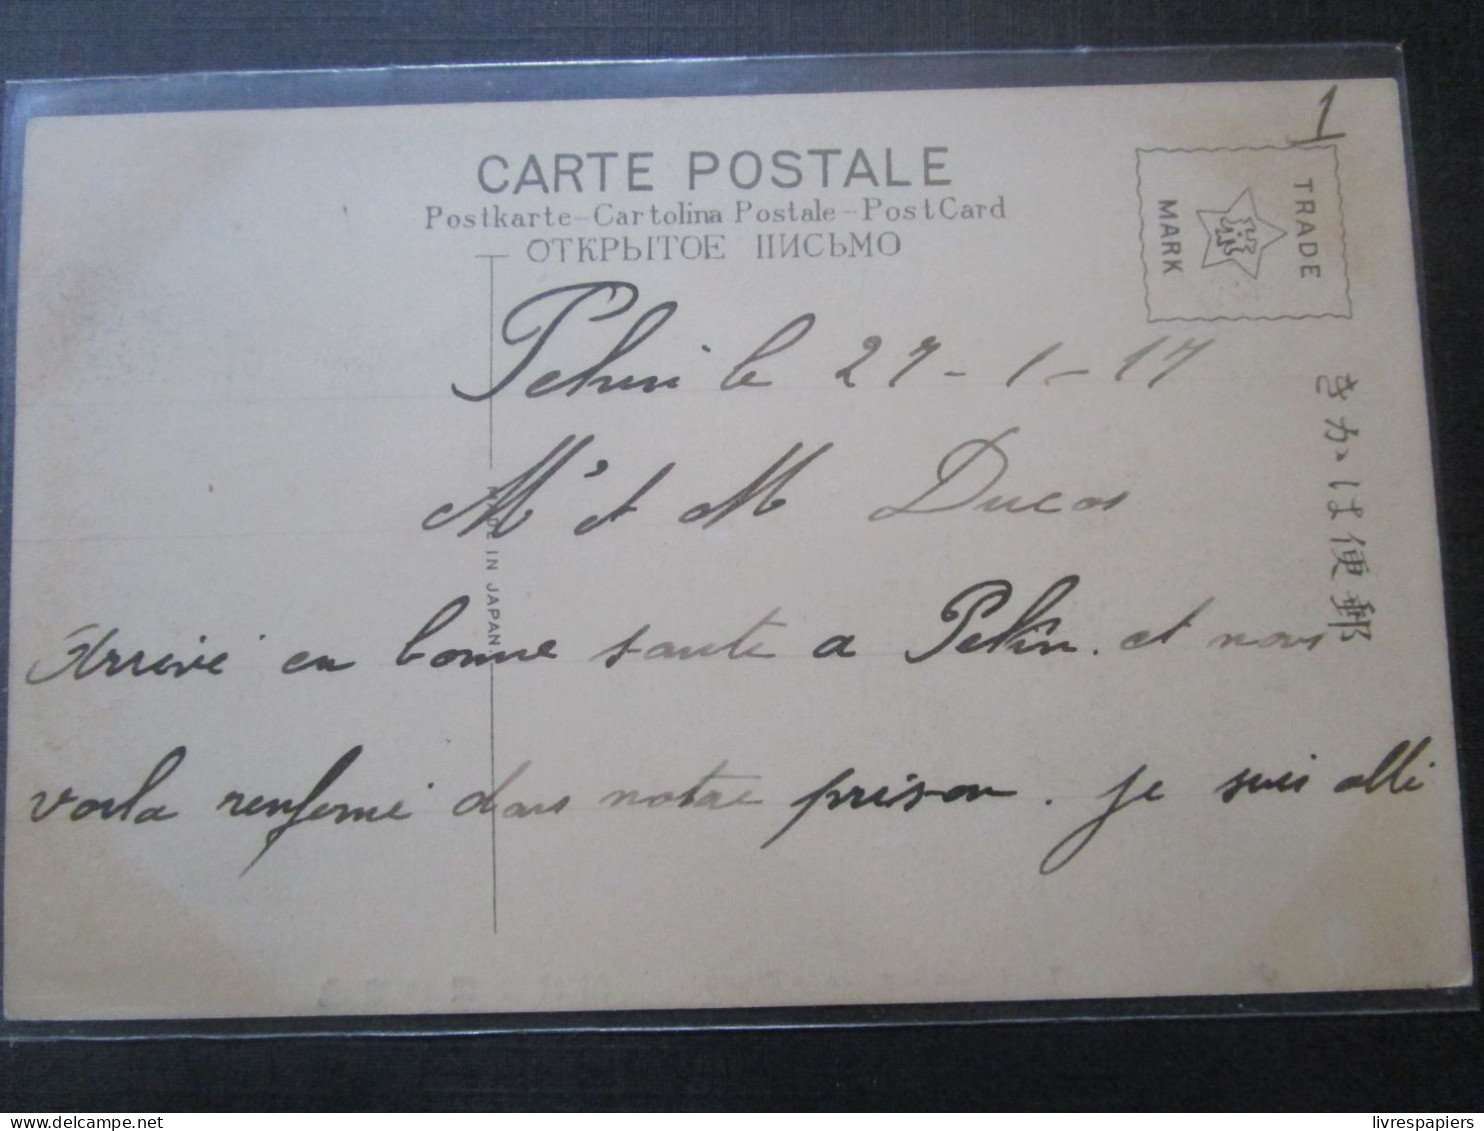 1
CARTE POSTALE
Postkarte-Cartolina Postale-PostCard
ОТКРЫТОЕ ПИСЬМО
TRADE
MARK
Pekin le 27-1-17
M et M Ducos
MADE IN JAPAN
きかは便郵
Arrivé en bonne sante a Pekin. et nous
voila renfermé dans notre prison. je suis allé
delcampe.net
livrespapiers